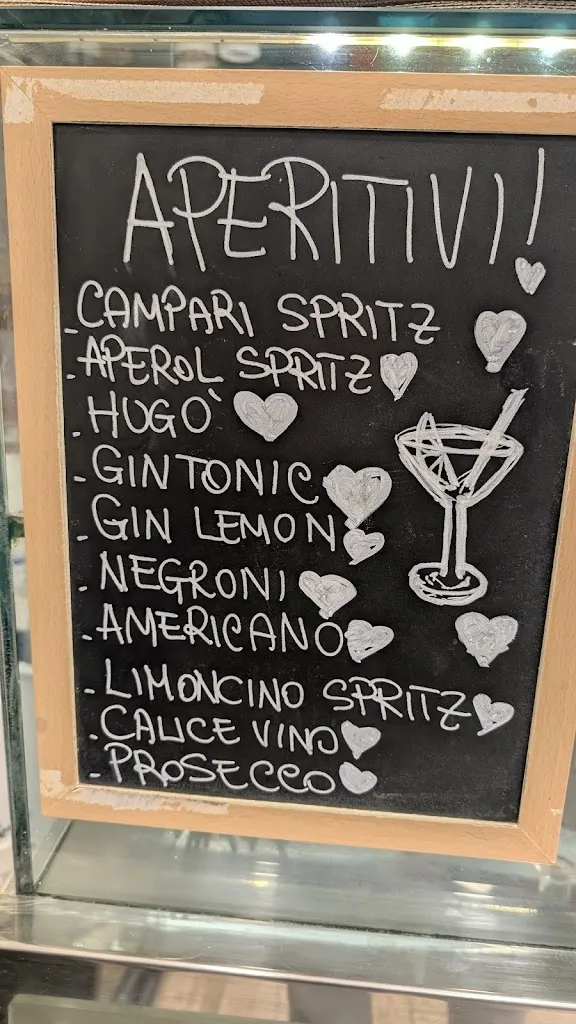 APERITIVI!
-CAMPARI SPRITZ
-APEROL SPRITZ
-HUGO'
-GINTONIC
-GIN LEMON
-NEGRONI
-AMERICANO
-LIMONCINO SPRITZ
-CALICE VINO
-PROSECCO